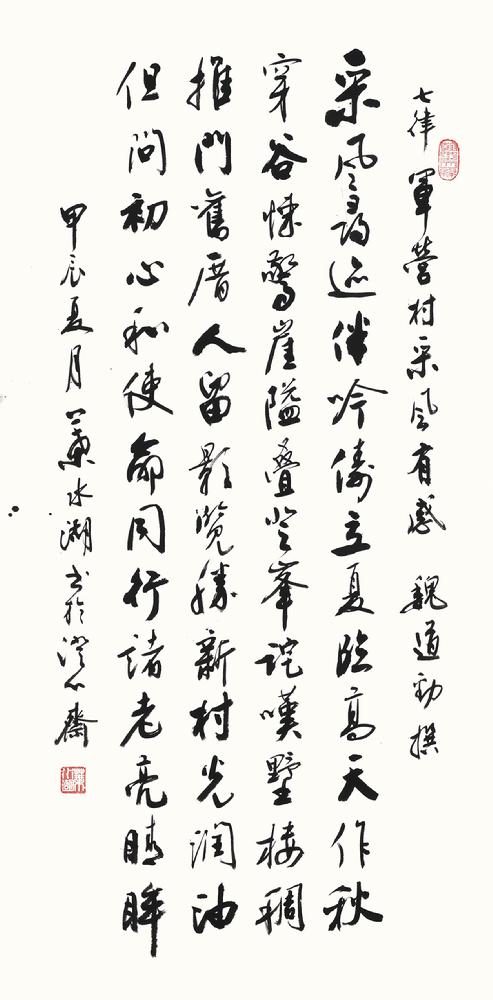 七律 軍營村采風有感 魏道勁撰
采風尋迹伴吟儔立夏臨高天作秋
穿谷悚驚崖隘疊登峯詫嘆墅樓稠
推門舊厝人留影覽勝新村光潤油
但問初心和使命同行諸老亮睛眸
甲辰夏月葉水湖书於澄心齋